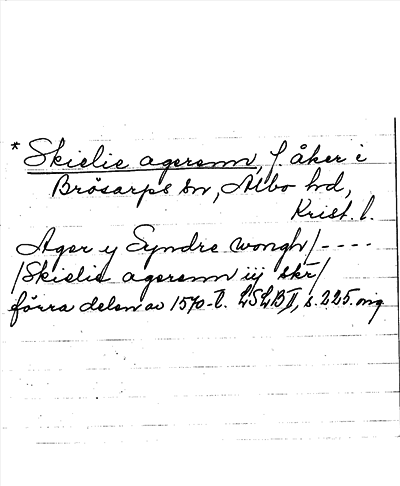 * Skielie agerenn, f. åker i
Brösarps sn, Albo hd,
Krist. l.
Ager y Syndre wongh/----
/Skielie agerenn iij skr/
förra delen av 1570-t. LSLBII, s. 225. mg